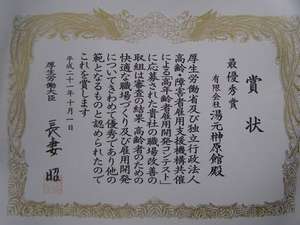 賞状
最優秀賞
有限会社湯元榊原館殿
厚生労働省及び独立行政法人
高齢・障害者雇用支援機構共催
による「高年齢者雇用開発コンテスト」
に応募された貴社の職場改善の
取組は審査の結果高齢者のための
快適な職場づくり及び雇用開発
についてきわめて優秀であり他の
範となるものと認められたので
これを賞します
平成二十一年十月一日
厚生労働大臣
長妻昭